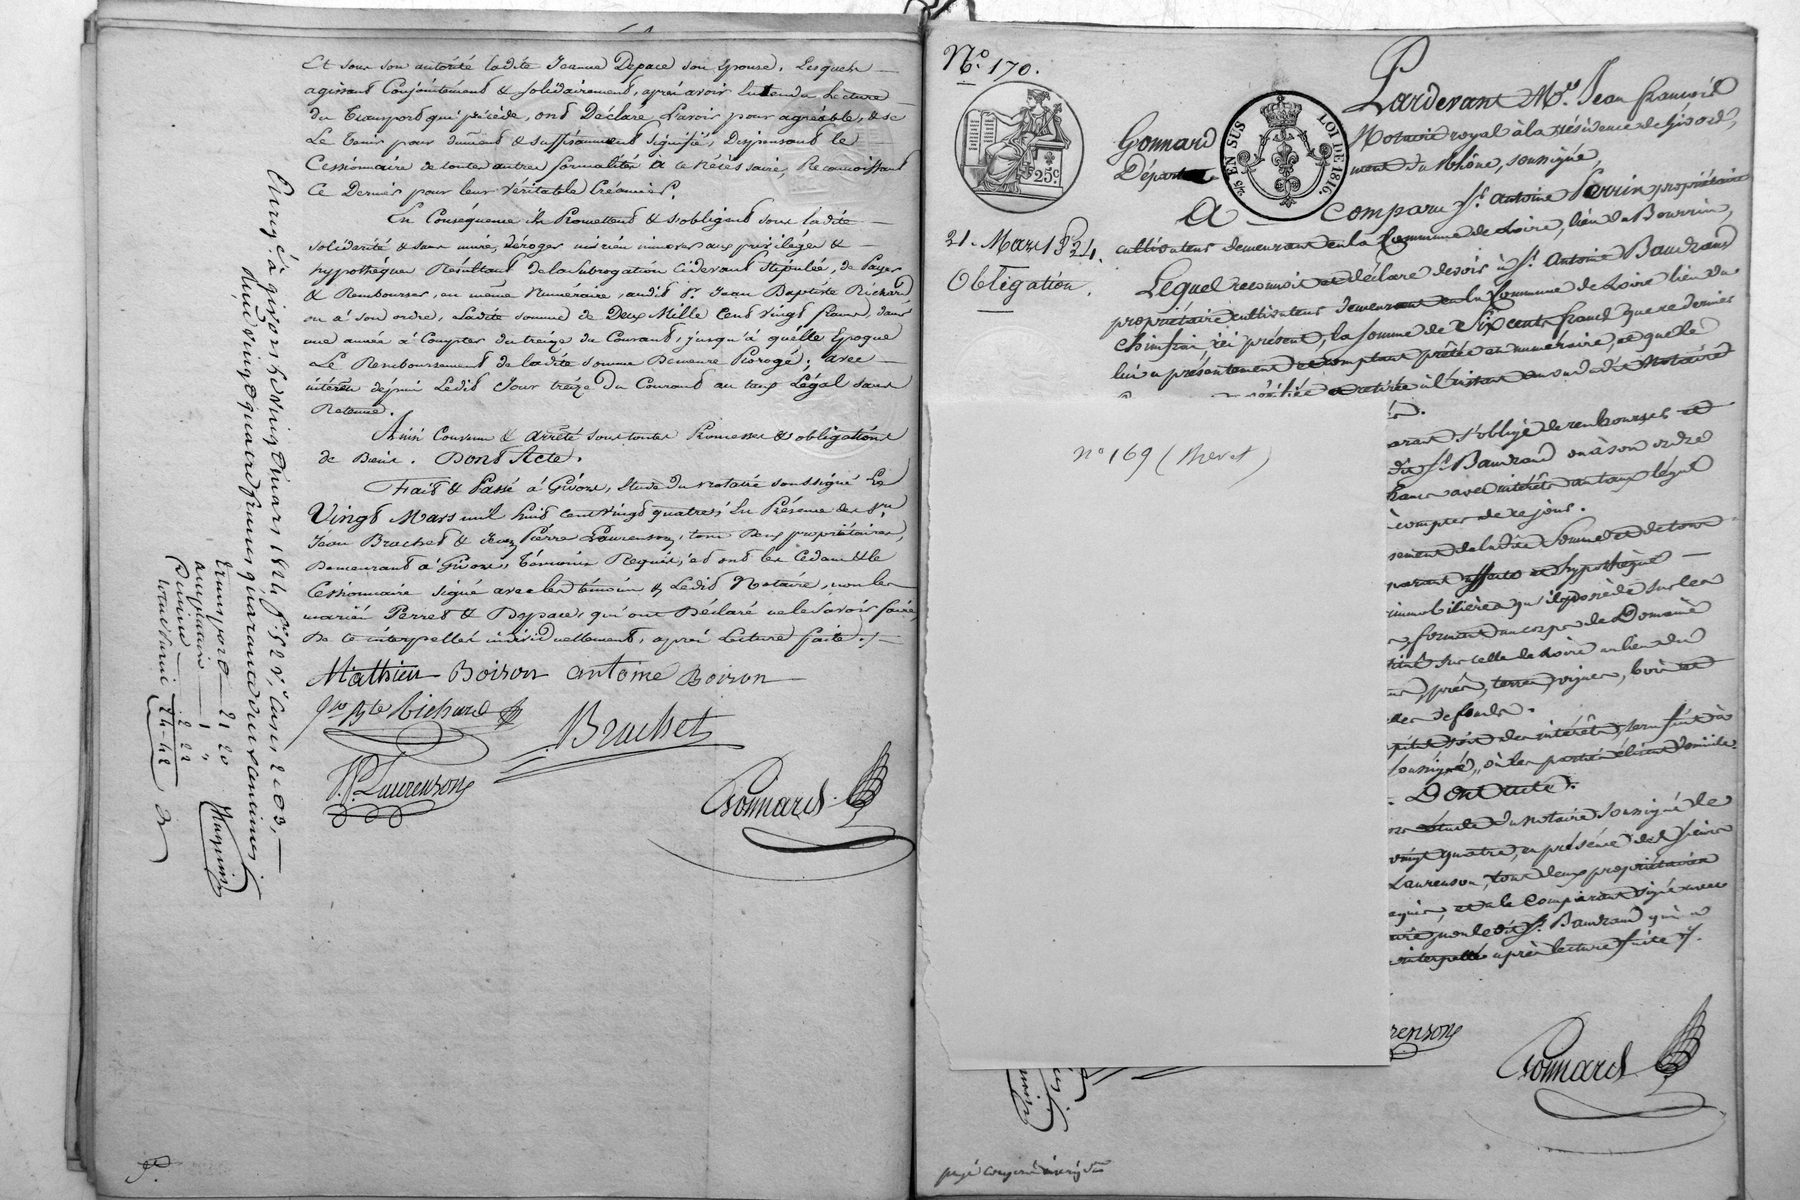 Et sous son autorité ladite Jeanne Depace son Epouse, Lesquels
agissant Conjointement & solidairement, après avoir Entendu Lecture
du Transport qui précède, ont Déclaré L'avoir pour agréable, & se
Le tenir pour dûment & suffisamment signifié, Dispensant le
Cessionnaire de toutes autres formalités à ce nécessaire, Reconnoissant
Ce Dernier pour leur véritable Créancier.
En Conséquence ils Promettent & s'obligent sous ladite
solidarité & sans nuire, déroger ni rien innover aux privilèges &
hypothèques Résultant de la subrogation Cidevant Stipulée, de Payer
& Rembourser, en même Numéraire, audit Sr. Jean Baptiste Richard
ou à son ordre, Ladite somme de Deux Mille Cent Vingt francs, dans
une année à Compter du treize du Courant, jusqu'à quelle Epoque
Le Remboursement de ladite somme Demeure Prorogé; avec
intérêts depuis Ledit Jour treize du Courant au taux Légal sans
Retenue.
Ainsi Convenu & arrêté sous toutes Promesses & obligations
de Biens. Dont Acte.
Fait & Passé à Givors, Etude du notaire soussigné Le
Vingt Mars mil huit cent vingt quatre; En Présence des Srs
Jean Brachet & Jean Pierre Laurenson, tous Deux propriétaires,
Demeurant à Givors, témoins Requis; et ont les Cédants & le
Cessionnaire signé avec les témoins & Ledit Notaire, non les
mariés Perret & Depace, qui ont Déclaré ne le savoir faire,
De ce interpellés individuellement, après Lecture faite./=
Mathieu Boiron antoine Boiron
Jn Bte Richard
Brachet
J.P. Laurenson
Gonnard
Enreg. à givors le vingt deux mars 1824 fo. 52 vo. Cases 2 et 3,
reçu vingt quatre francs quarante deux centimes
Transport 21 20
2 22
total 24-42
No. 170.
25c.
EN SUS
LOI DE 1816.
21. Mars 1824.
Obligation.
Pardevant Me. Jean François
Gonnard Notaire royal à la résidence de Givors,
Département du Rhône, soussigné,
A Comparu Sr. Antoine Perrin propriétaire
cultivateur demeurant en la Commune de Loire, lieu du Bourrin,
Lequel reconnoit et déclare devoir à Sr. Antoine Baudrand
propriétaire cultivateur demeurant en la Commune de Loire lieu du
ici présent, la somme de Six cents francs que ce dernier
lui a présentement et comptant prêtée en numéraire, ce que le
et retirée à l'instant au vu du Notaire
no 169 (
s'oblige de rembourser et
dit Sr. Baudrand ou à son ordre
francs avec intérêts au taux légal
à compter de ce jour.
de ladite Somme et de tous
affecte et hypothèque
immobilières qu'il possède sur les
formant un corps de Domaine
sur celle de Loire au lieu du
près, terres, vignes, bois et
de fonds.
soit des intérêts, sera fait à
soussigné, où les parties élisent domicile.
Dont acte.
étude du notaire soussigné le
vingt quatre, en présence des Sieurs
Laurenson, tous deux propriétaires
et a le Comparant signé avec
non ledit Sr. Baudrand qui a
interpellé après lecture faite
renson
Gonnard